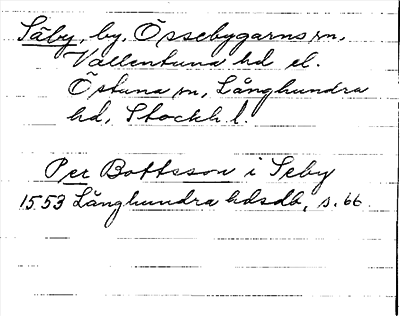 Säby, by, Össebygarns sn,
Vallentuna hd el.
Östuna sn, Långhundra
hd, Stockh. l.
Per Bottsson i Seby
1553 Långhundra hdsdb, s. 66.